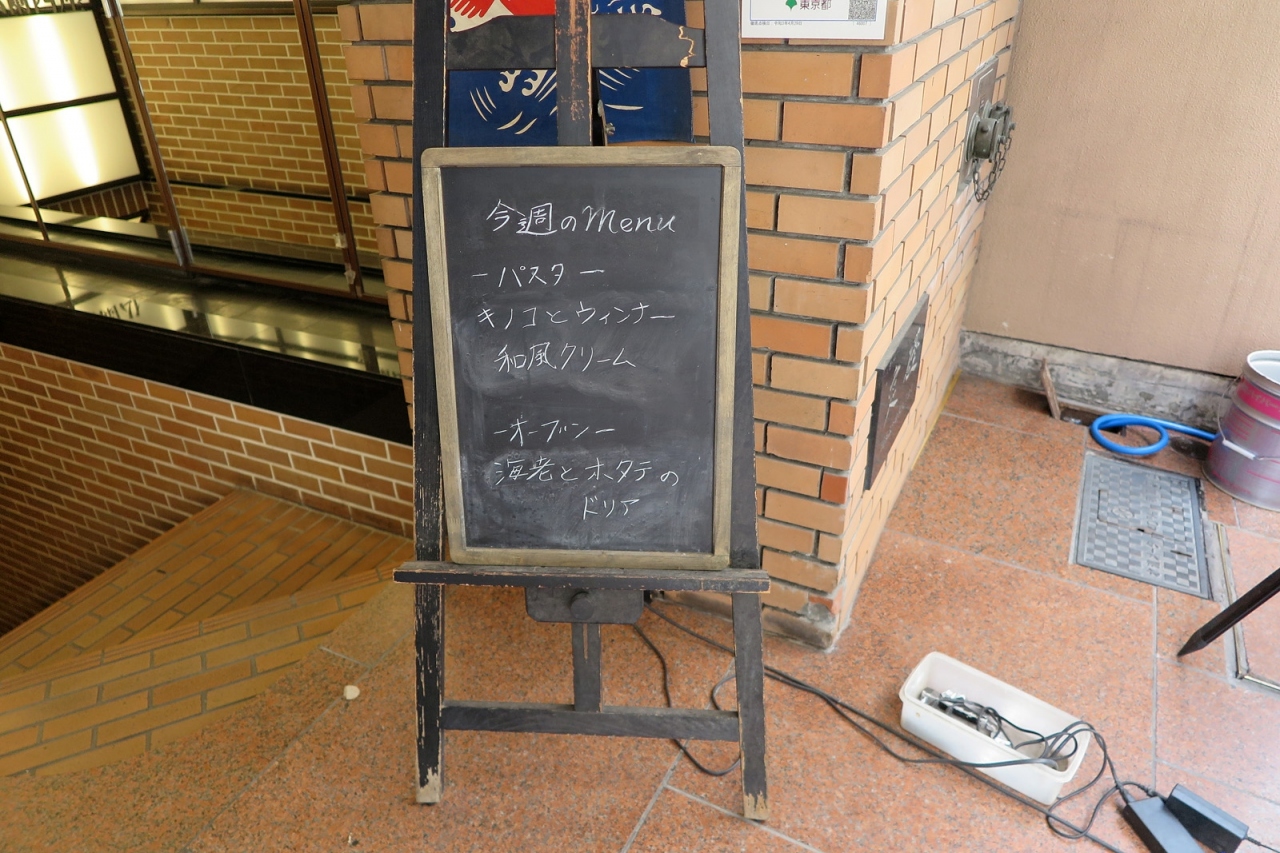 東京都
今週のMenu
ーパスター
キノコとウィンナー
和風クリーム
ーオーブンー
海老とホタテの
ドリア